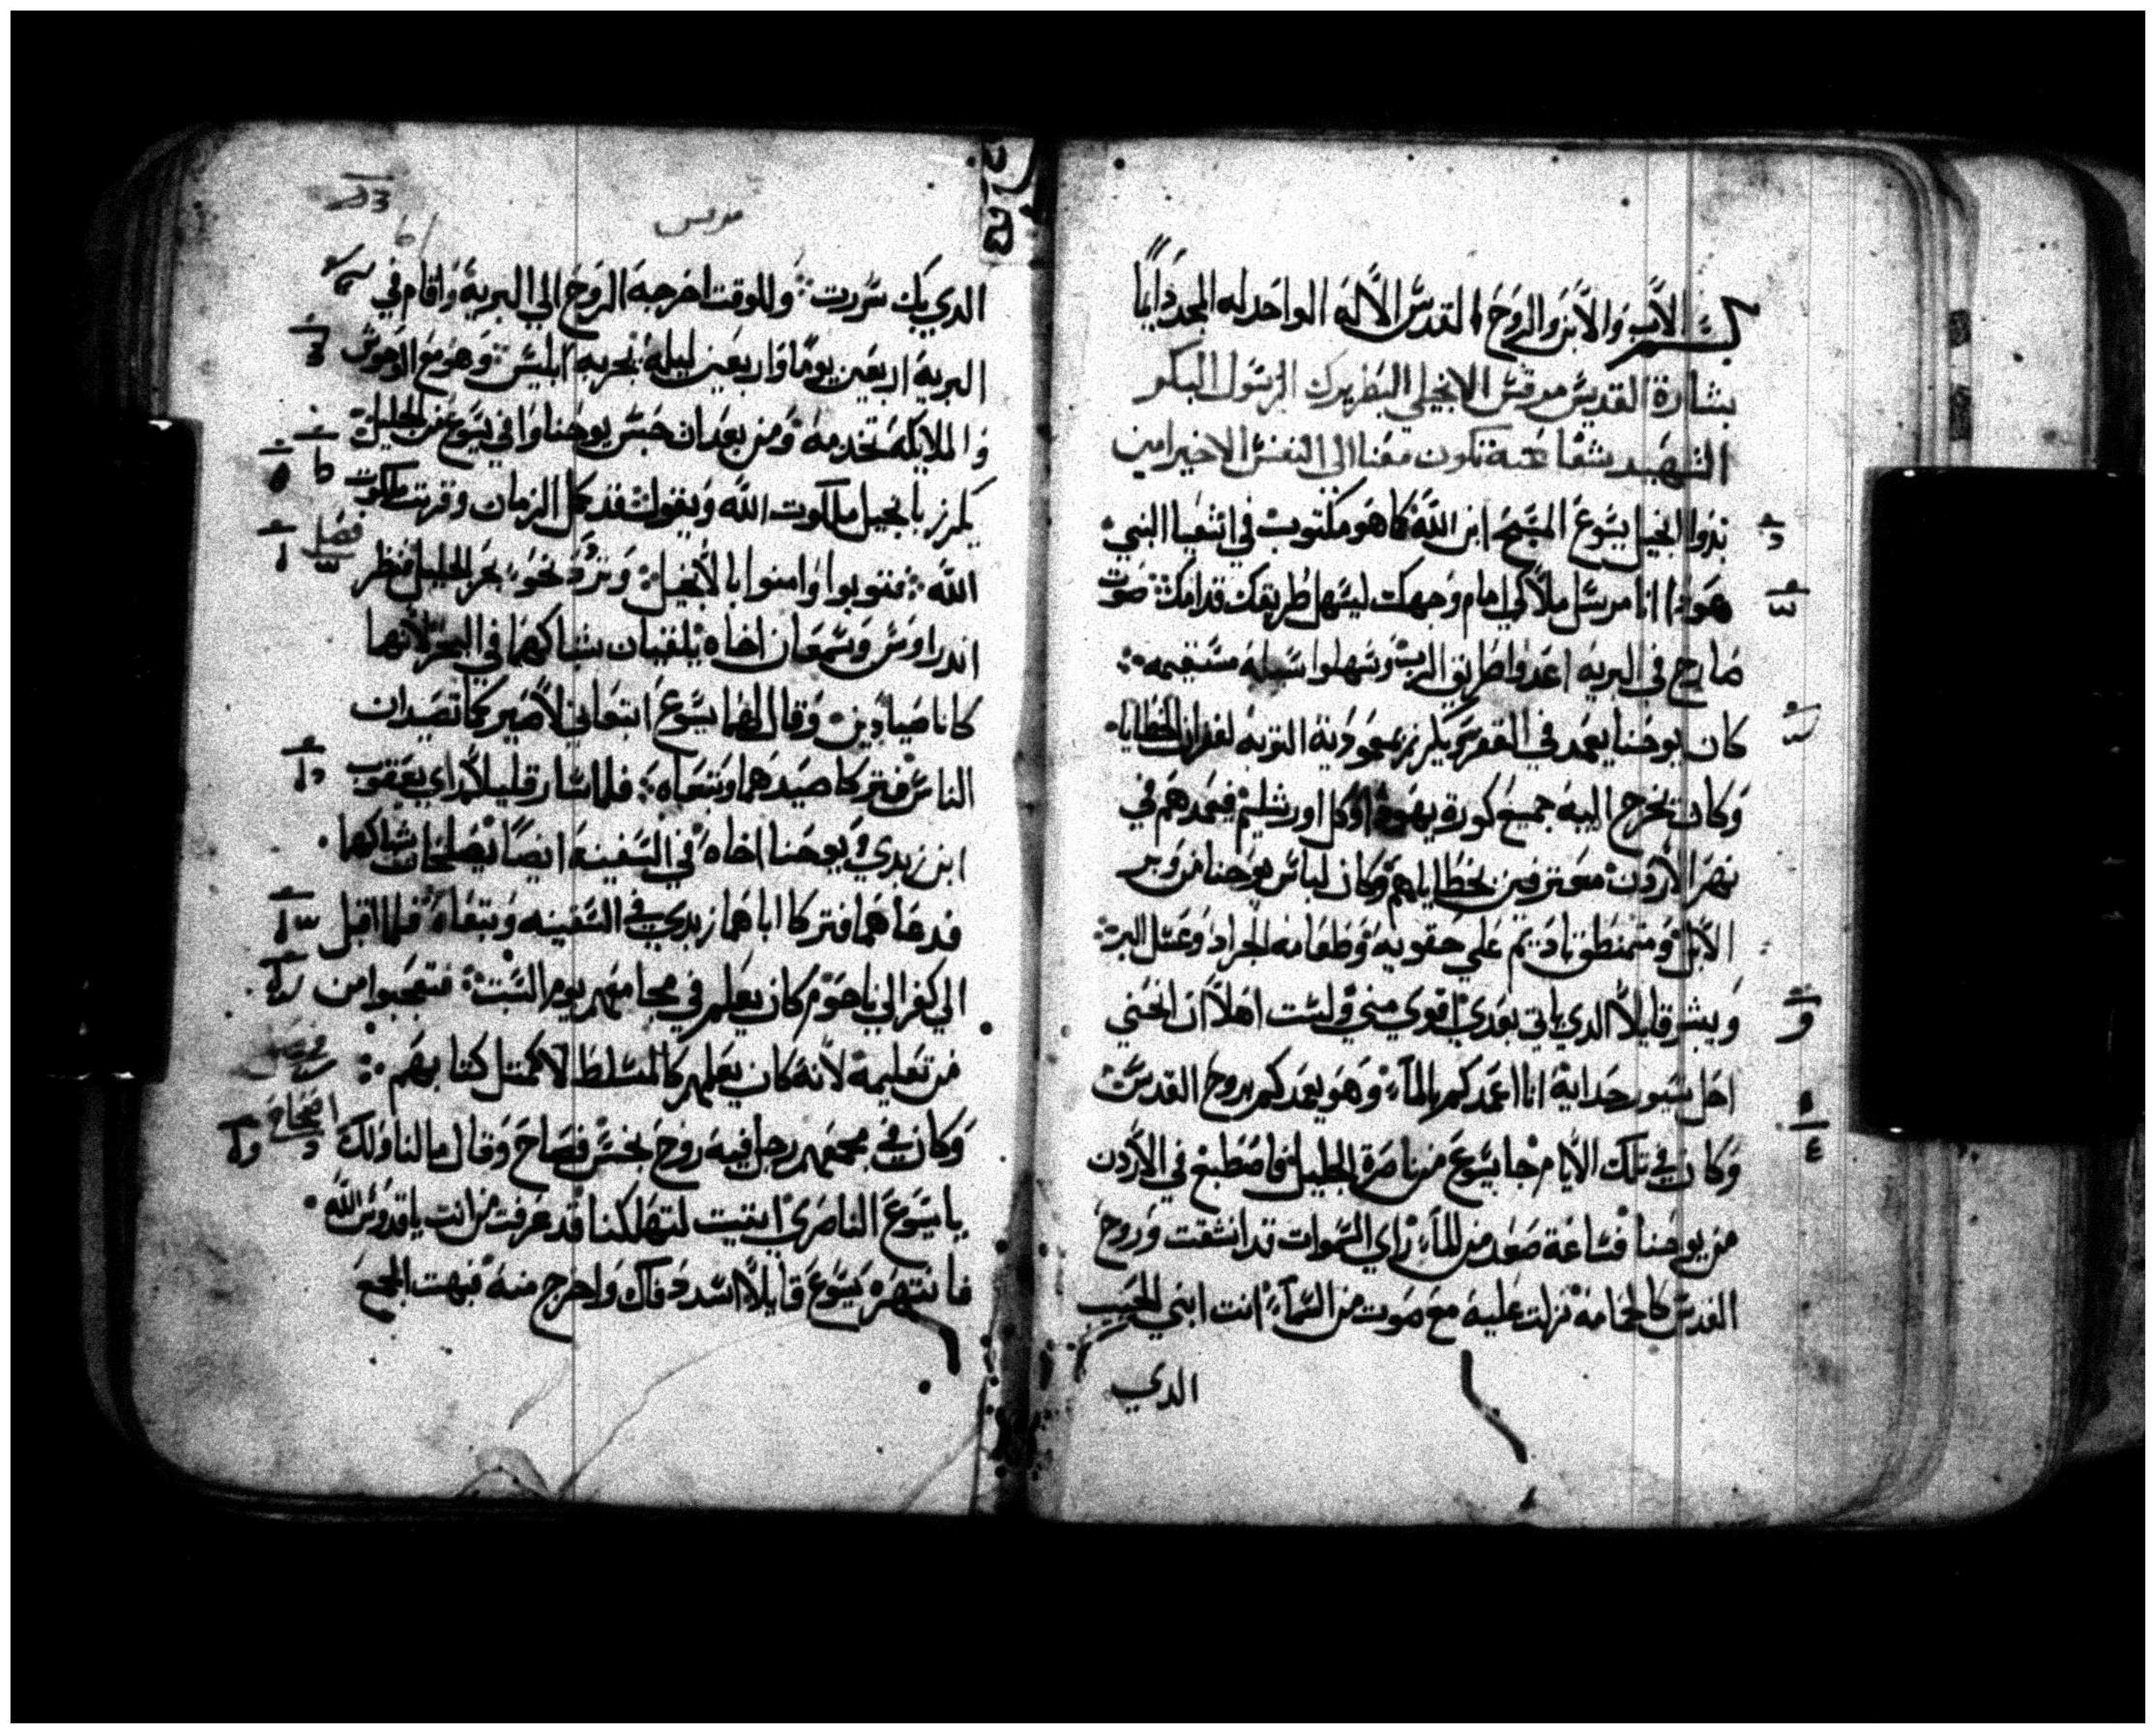 بسم الاب والابن والروح القدس الاله الواحد له المجد دايماً
بشارة القديس مرقس الانجيلي البطريرك الرسول البكر
الشهيد شفاعته تكون معنا الى النفس الاخير امين
بدوا انجيل يسوع المسيح ابن الله كما هو مكتوب في اشعيا النبي
هوذا انا مرسل ملاكي امام وجهك ليسهل طريقك قدامك صوت
صارخ في البريه اعدوا طريق الرب وسهلوا سبله مستقيمه
كان يوحنا يعمد في القفر ويكرز بمعمودية التوبه لغفران الخطايا
وكان يخرج اليه جميع كورة يهودا وكل اورشليم فيعمدهم في
نهر الاردن معترفين بخطاياهم وكان لباس يوحنا من وبر
الابل ومتمنطق باديم علي حقويه وطعامه الجراد وعسل البر
ويبشر قايلاً الدي ياتي بعدي اقوي مني ولست اهلاً ان انحني
احل سيور حدايه انا اعمدكم بالماء وهو يعمدكم بروح القدس
وكان في تلك الايام جا يسوع من ناصرة الجليل فاصطبغ في الاردن
من يوحنا فساعة صعد من الماء راي السموات قد انشقت وروح
القدس كالحمامه نزلت عليه مع صوت من السماء انت ابني الحبيب
الدي
مرقس
الدي بك سررت وللوقت اخرجه الروح الي البرية واقام في
البرية اربعين يوما واربعين ليلة يجربه ابليس وهو مع الوحوش
والملايكة تخدمه ومن بعد ان حبس يوحنا وافي يسوع من الجليل
يكرز بانجيل ملكوت الله ويقول قد كمل الزمان وقربت ملكوت
الله فتوبوا وامنوا بالانجيل نحو بحر الجليل فنظر
فصل
اندراوس وسمعان اخاه يلقيان شباكهما في البحر لانهما
كانا صيادين وقال لهما يسوع اتبعاني لاصيركما تصيدان
الناس فتركا صيدهما وتبعاه فلما سار قليلاً راي يعقوب
ابن زبدي ويوحنا اخاه في السفينة ايضاً يصلحان شباكهما
فدعاهما فتركا اباهما زبدي في السفينه وتبعاه فلما اقبل
الي كفرالي ناحوم كان يعلم في مجامعهم يوم السبت فتعجبوا من
من تعليمه لانه كان يعلمهم كالمسلط لا كمتل كتابهم
وكان في مجمعهم رجل فيه روح نجس فصاح وقال ما لنا ولك
يا يسوع الناصري اتيت لتهلكنا قد عرفت من انت يا قدوس الله
فانتهره يسوع قايلاً اسدد فاك واخرج منه فبهت الجمع